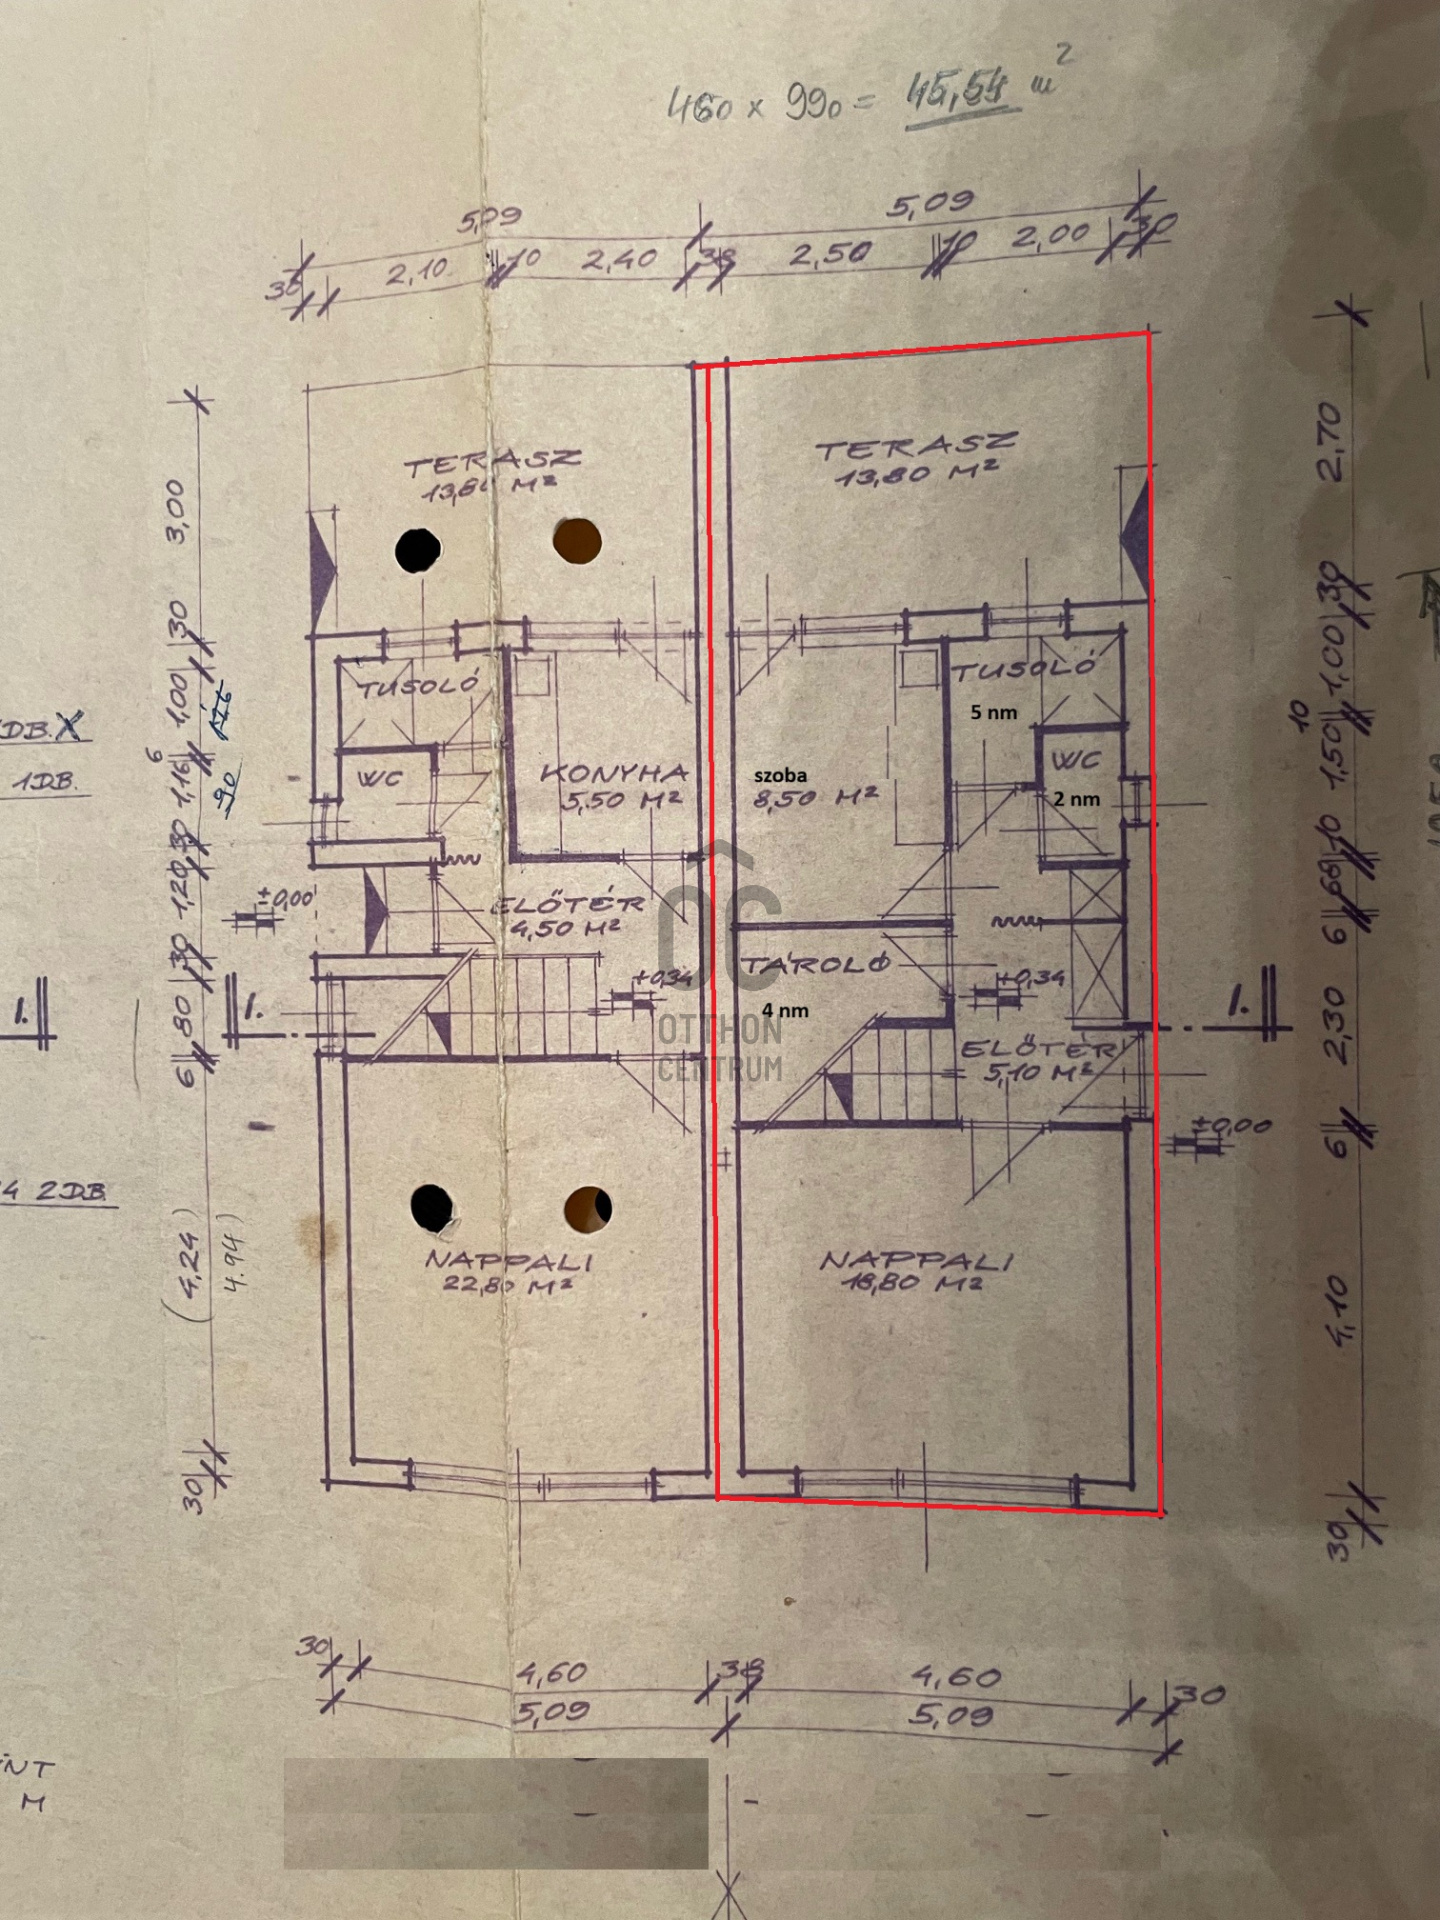 460 x 990 = 45,54 m²
5,09
5,09
30
2,10
10
2,40
38
2,50
10
2,00
30
TERASZ
13,80 M²
TERASZ
13,80 M²
3,00
30
1,00
1,16
6
90
30
1,20
30
1,80
6
(4,24)
4.94
30
2,70
30
1,00
10
1,50
10
6
2,30
6
4,10
30
DB. X
1DB.
4 2DB.
TUSOLÓ
KONYHA
5,50 M²
WC
ELŐTÉR
4,50 M²
±0,00
+0,34
TUSOLÓ
5 nm
szoba
8,50 M²
WC
2 nm
TÁROLÓ
4 nm
+0,34
ELŐTÉR
5,10 M²
±0,00
1.
1.
1.
OC
OTTHON
CENTRUM
NAPPALI
22,80 M²
NAPPALI
18,80 M²
30
4,60
38
4,60
30
5,09
5,09
M